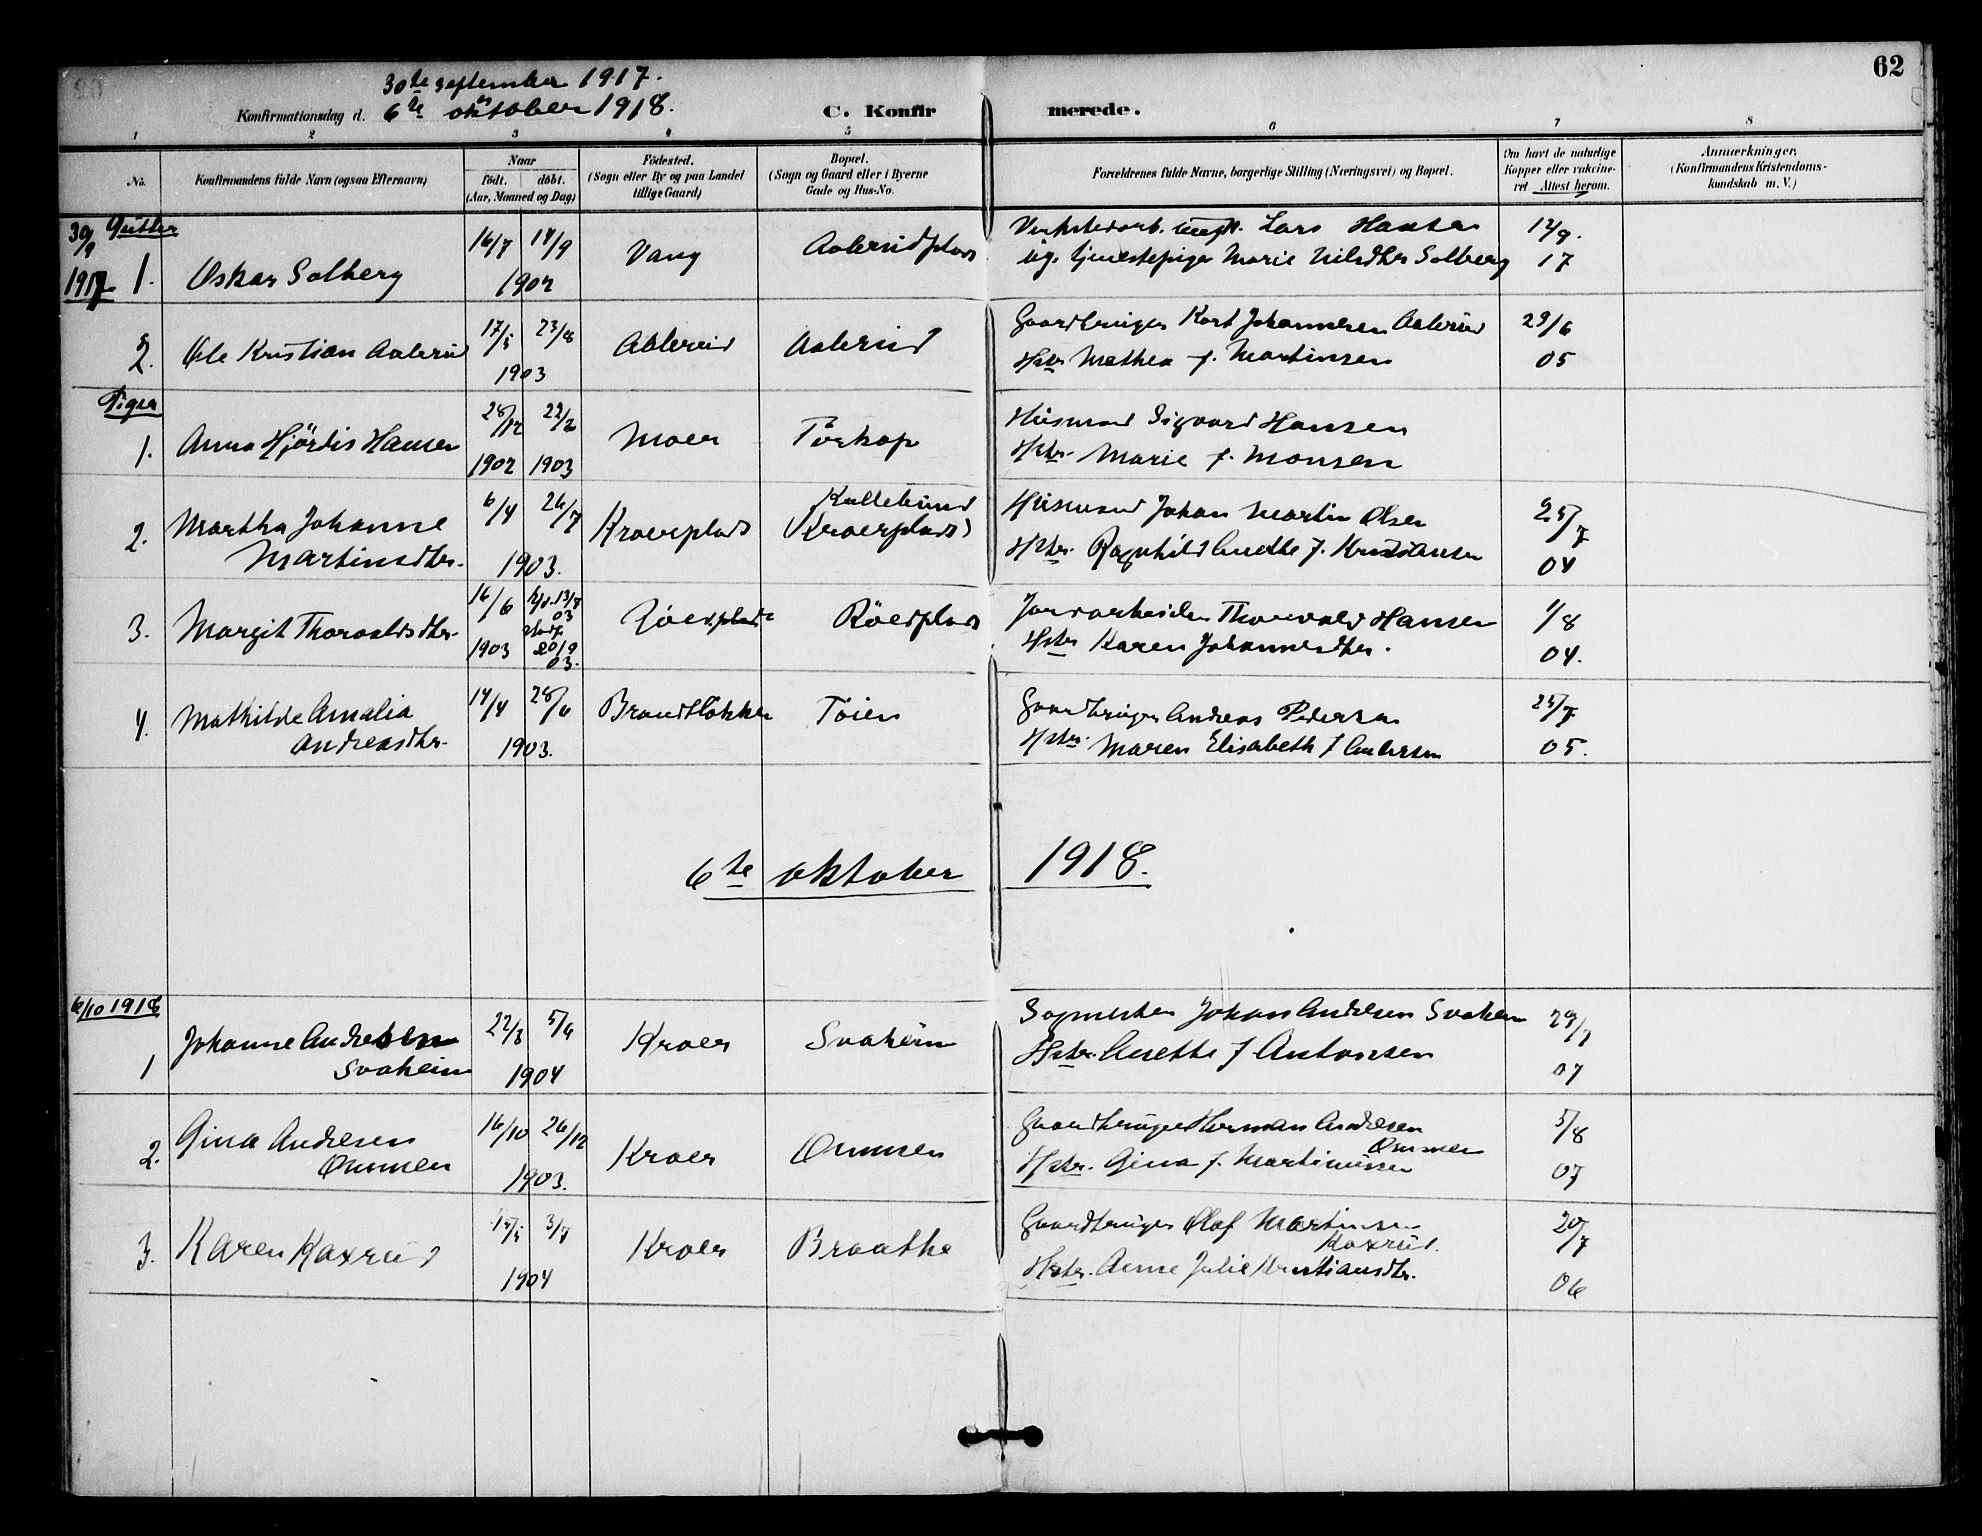 62
30te September 1917.
Konfirmationsdag d. 6te oktober 1918.
C. Konfirmerede.
1 2 3 4 5 6 7 8
No. Konfirmandens fulde Navn (ogsaa Efternavn) Naar født. døbt. (Aar, Maaned og Dag) Fødested. (Sogn eller By og paa Landet tillige Gaard) Bopæl. (Sogn og Gaard eller i Byerne Gade og Hus-No. Forældrenes fulde Navne, borgerlige Stilling (Næringsvei) og Bopæl. Om havt de naturlige Kopper eller vakcineret Attest herom. Anmærkninger. (Konfirmandens Kristendomskundskab m. V.)
30/9 1917 Gutter
1. Oskar Solberg 16/7 14/9 1902 Vang Aalerudplads Lars Hansen
ug. tjenestepige Marie Nilsdtr Solberg 12/9. 17
2. Ole Kristian Aalerud 17/5 23/8 1903 Aalerud Aalerud Gaardbruger Karl Johannesen Aalerud
Hstr Mathea f. Martinsen 29/6 05
Piger
1. Anna Hjördis Hansen 28/12 1902 22/2 1903 Moer Torkop Husmand Sigvard Hansen
Hstr. Marie f. Monsen
2. Martha Johanne
Martinsdtr. 6/4 26/7 1903. Kroerplads Kullebund
(Kroerplads) Husmand Johan Martin Olsen
Hstr. Ragnhild Anethe f. Kristiansen 25/7 04
3. Margit Thorvaldsdtr. 16/6 1903 hjd. 13/8 03 stadf 20/9 03. Röedplads Röedplads Jordarbeider Thorvald Hansen
Hstr Karen Johannesdtr. 1/8 04.
4. Mathilde Amalia
Andreasdtr. 14/4 28/6 1903. Brandtløkken Töien Gaardbruger Andreas Pedersen
Hstr. Maren Elisabeth f Andersen 25/7 05.
6te oktober 1918.
6/10 1918
1 Johanne Andresen
Svaheim 22/3 5/6 1904 Kroer Svaheim Johan Andresen Svaheim
Hstr. Anette f Antonsen 29/7 07
2. Gina Andresen
Ommen 16/10 26/12 1903. Kroer Ommen Gaardbruger Herman Andresen
Ommen
Hstr. Gina f. Martinusen 5/8 07
3. Karen Kaxrud 15/5 3/7 1904 Kroer Braathe Gaardbruger Olaf Martinsen
Kaxrud.
Hstr. Anne Julie Kristiansdtr. 20/7 06